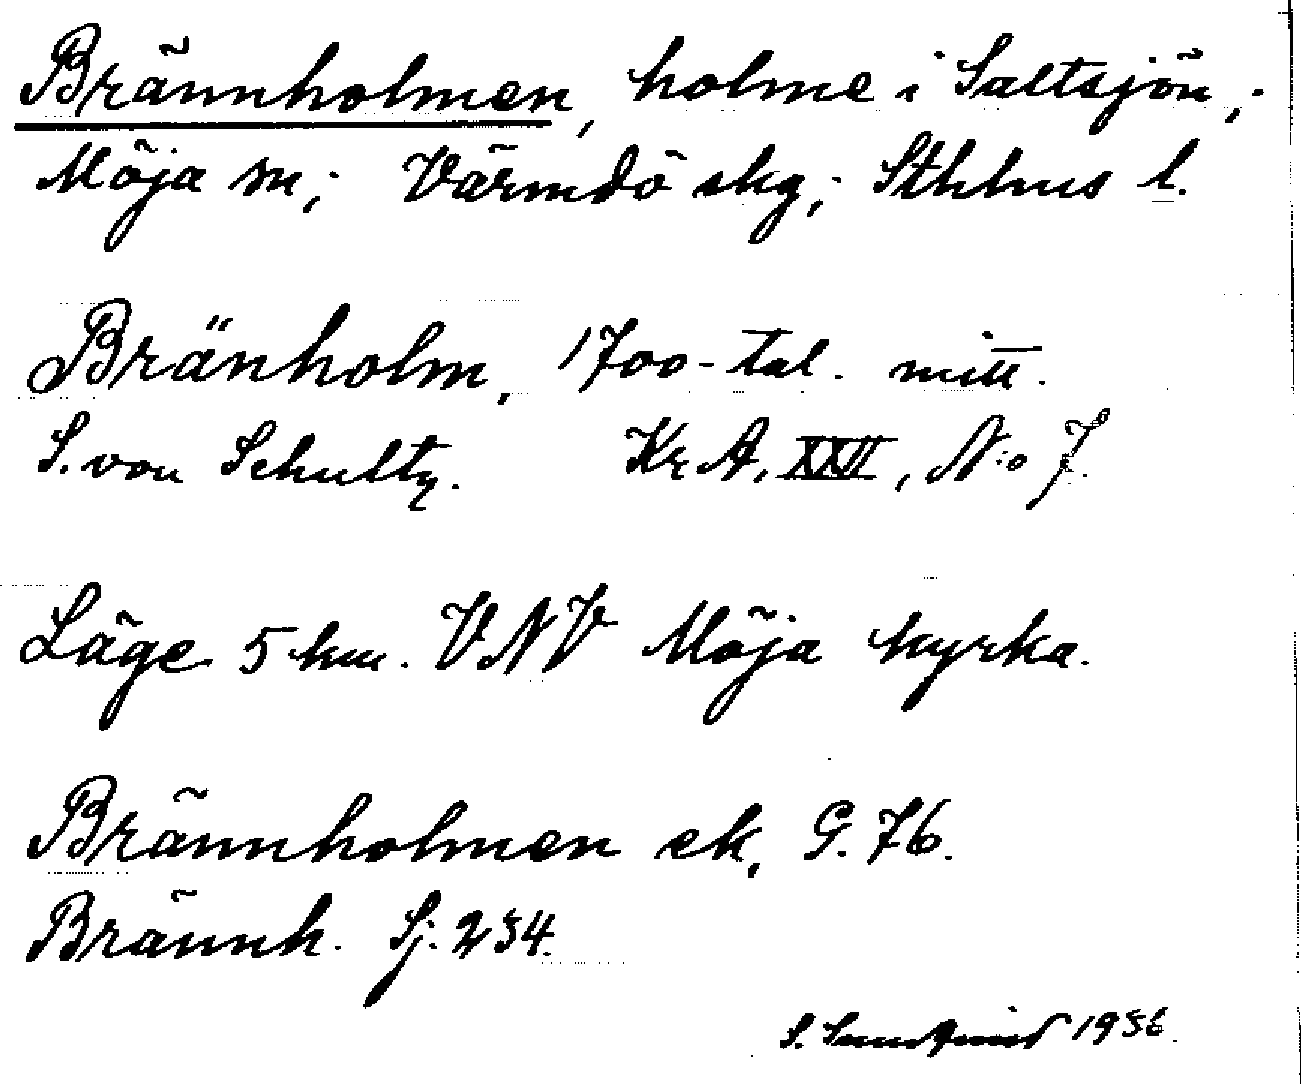 Brännholmen, holme i Saltsjön;
Möja sn; Värmdö skg; Sthlms l.
Bränholm, 1700-tal. mitt.
S. von Schultz. Kr A. XXII, N:o 7.
Läge 5 km. VNV Möja kyrka.
Brännholmen ek, G. 76.
Brännh. Sj. 234.
S. 1936.